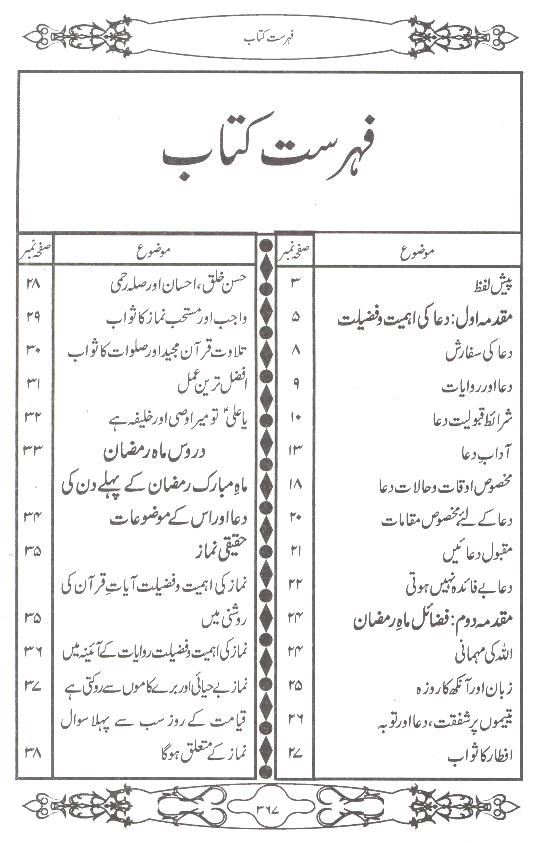 فہرست کتاب
فہرست کتاب
موضوع صفحہ نمبر
پیش لفظ ۳
مقدمہ اول: دعا کی اہمیت و فضیلت ۵
دعا کی سفارش ۸
دعا اور روایات ۹
شرائط قبولیت دعا ۱۰
آداب دعا ۱۳
مخصوص اوقات و حالات دعا ۱۸
دعا کے لئے مخصوص مقامات ۲۰
مقبول دعائیں ۲۱
دعا بے فائدہ نہیں ہوتی ۲۲
مقدمہ دوم: فضائل ماہِ رمضان ۲۴
اللہ کی مہمانی ۲۴
زبان اور آنکھ کا روزہ ۲۵
یتیموں پر شفقت، دعا اور توبہ ۲۶
افطار کا ثواب ۲۷
موضوع صفحہ نمبر
حسن خلق، احسان اور صلہ رحمی ۲۸
واجب اور مستحب نماز کا ثواب ۲۹
تلاوت قرآن مجید اور صلوات کا ثواب ۳۰
افضل ترین عمل ۳۱
یا علیؑ تو میرا وصی اور خلیفہ ہے ۳۲
دروس ماہِ رمضان ۳۳
ماہِ مبارک رمضان کے پہلے دن کی
دعا اور اس کے موضوعات ۳۴
حقیقی نماز ۳۵
نماز کی اہمیت و فضیلت آیاتِ قرآن کی
روشنی میں ۳۵
نماز کی اہمیت و فضیلت روایات کے آئینہ میں ۳۶
نماز بے حیائی اور برے کاموں سے روکتی ہے ۳۷
قیامت کے روز سب سے پہلا سوال
نماز کے متعلق ہوگا ۳۸
۳۶۷